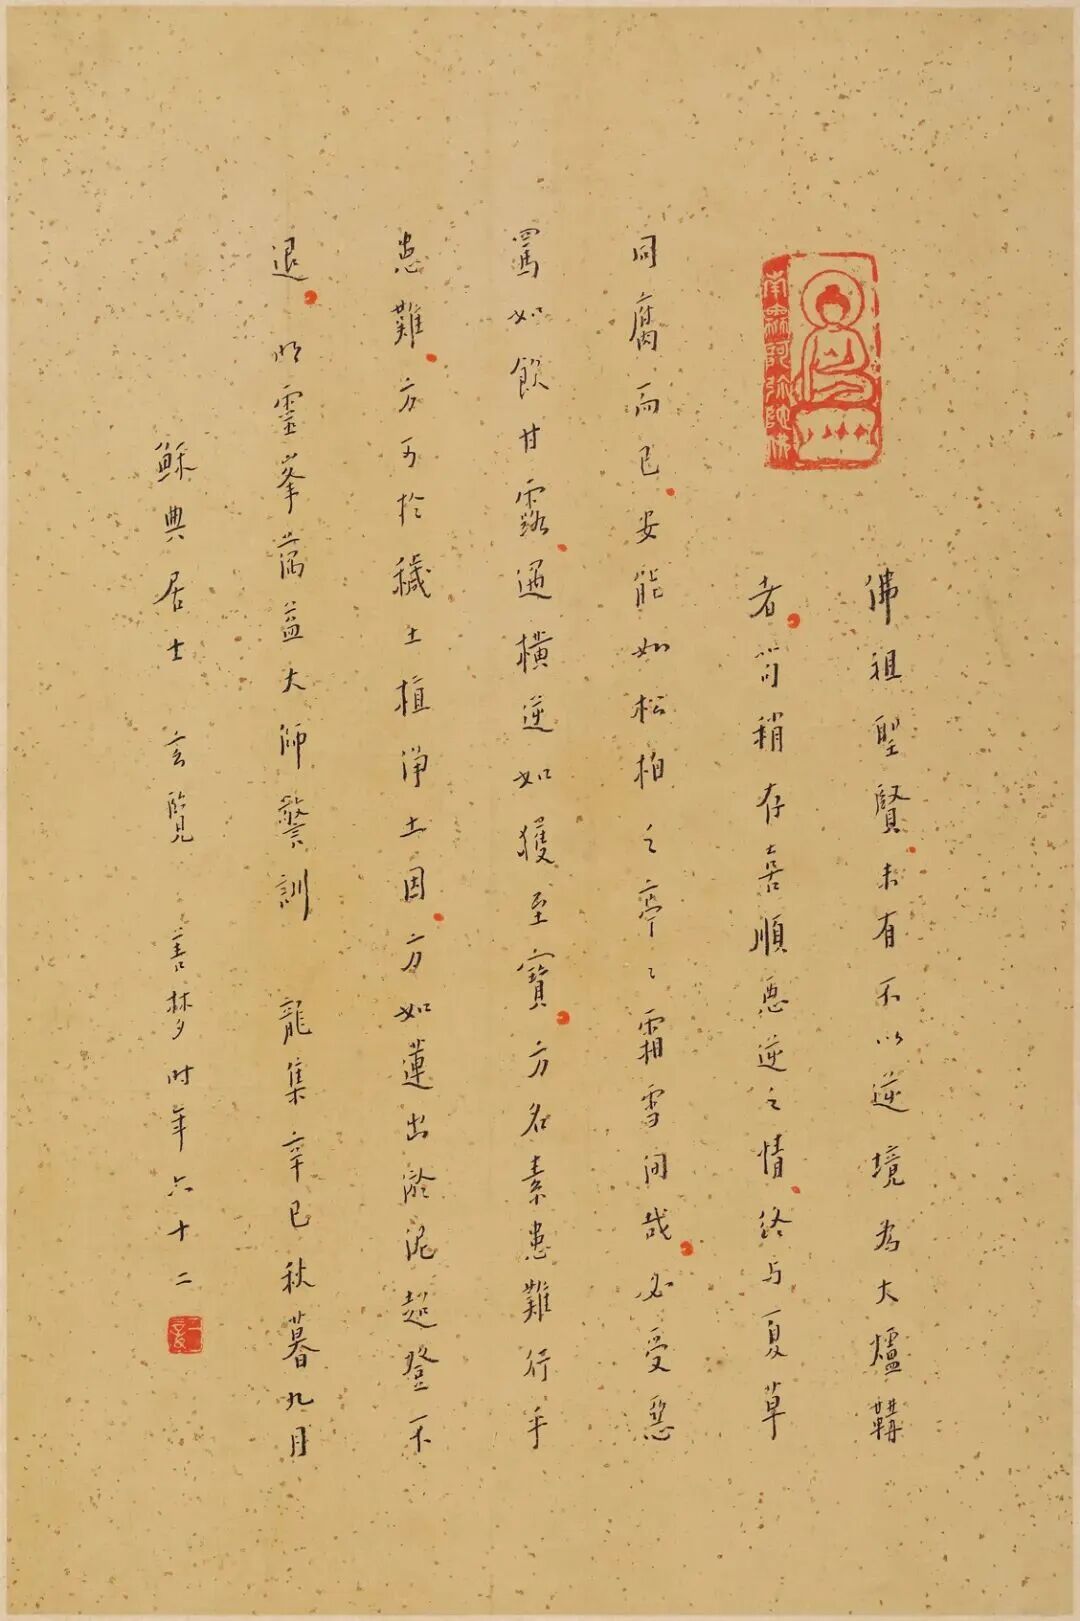 南無阿弥陀佛
佛祖聖賢未有不以逆境為大爐鞴
者苟稍存喜順惡逆之情終与夏草
同腐而已安能如松柏之亭〻霜雪间哉必受惡
罵如飲甘露遇橫逆如獲至寶方名素患難行乎
患難方可於穢土植淨土因方如蓮出淤泥超登不
退 明靈峯蕅益大師警訓 龍集辛巳秋暮九月
穌典居士 玄覽 善夢時年六十二